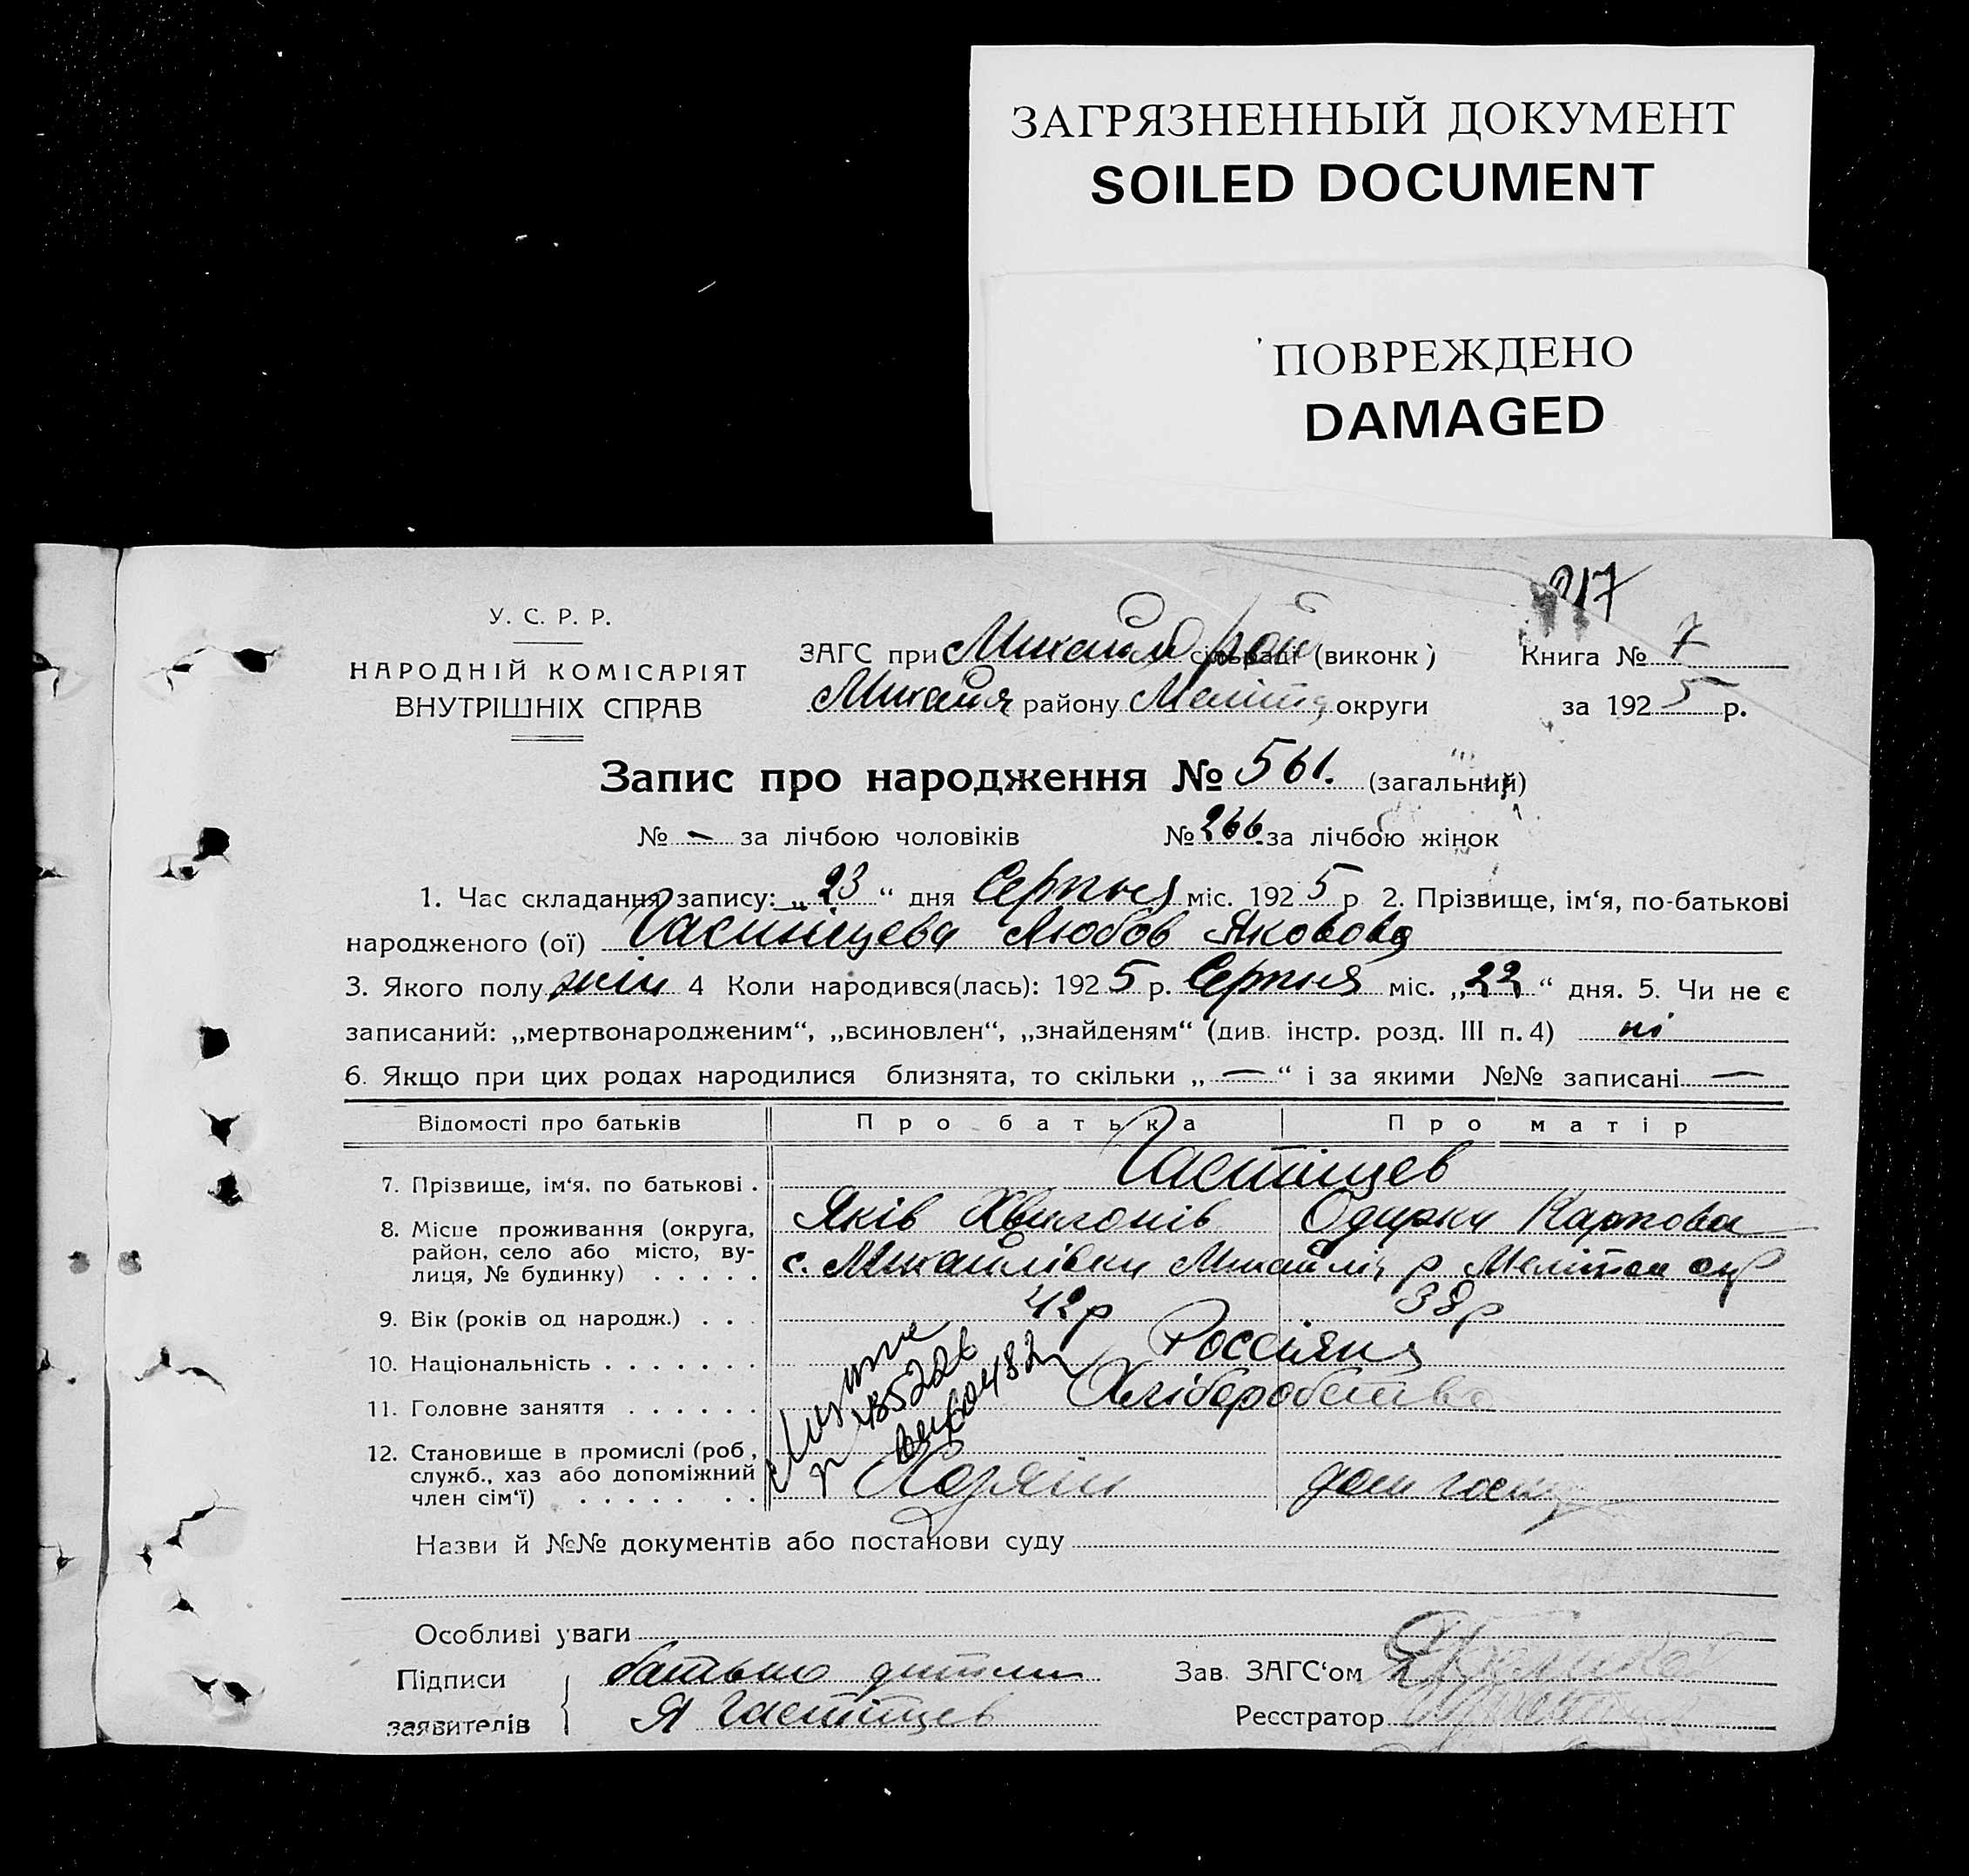 ЗАГРЯЗНЕННЫЙ ДОКУМЕНТ
SOILED DOCUMENT
ПОВРЕЖДЕНО
DAMAGED
217
У. С. Р. Р.
НАРОДНІЙ КОМІСАРІЯТ
ВНУТРІШНІХ СПРАВ
ЗАГС при Михайл рай сільраді (виконк) Книга № 7
Михайл району Меліт округи за 1925 р.
Запис про народження № 561. (загальний)
№ - за лічбою чоловіків № 266. за лічбою жінок
1. Час складання запису: „23“ дня Серпня міс. 1925 р 2. Прізвище, ім‘я, по-батькові
народженого (ої) Частіщева Любов Яковова
3. Якого полу жін 4 Коли народився(лась): 1925 р. Серпня міс. „22“ дня. 5. Чи не є
записаний: „мертвонародженим“, „всиновлен“, „знайденям“ (див. інстр. розд. III п. 4) ні
6. Якщо при цих родах народилися близнята, то скільки „—“ і за якими №№ записані —
Відомості про батьків Про батька Про матір
7. Прізвище, ім‘я, по батькові . Частіщев
Яків Одарка Карпова
8. Місце проживання (округа,
район, село або місто, ву-
лиця, № будинку) . . . . . с. Михайлівки Михайлів р Мелітоп окр
9. Вік (років од народж.) . . . 42 р 38 р
10. Національність . . . . . . . Россіяне
11. Головне заняття . . . . . . Хліборобство
12. Становище в промислі (роб.,
служб., хаз або допоміжний
член сім‘ї) . . . . . . . Хозяїн дом госп
Назви й №№ документів або постанови суду
Особливі уваги
Підписи батько дитини Зав. ЗАГС‘ом
заявителів Я Частіщев Реєстратор